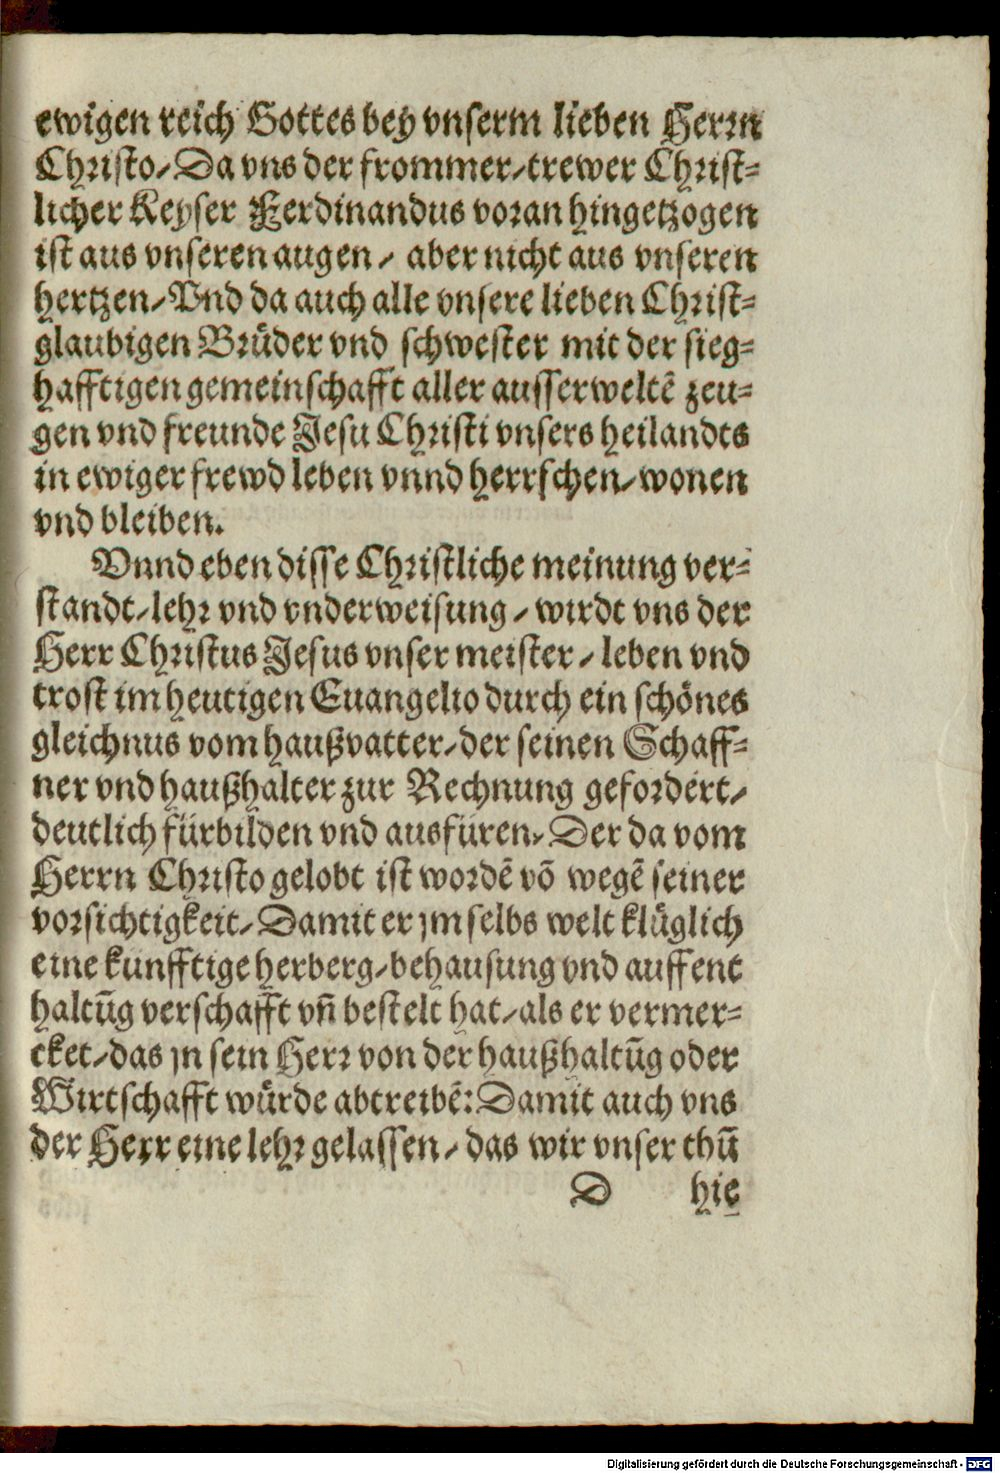 ewigen reich Gottes bey vnserm lieben Herrn
Christo/ Da vns der frommer/ trewer Christ=
licher Keyser Ferdinandus voran hingetzogen
ist aus vnseren augen/ aber nicht aus vnseren
hertzen/ Vnd da auch alle vnsere lieben Christ=
glaubigen Brüder vnd schwester mit der sieg=
hafftigen gemeinschafft aller ausserweltē zeu=
gen vnd freunde Jesu Christi vnsers heilandts
in ewiger frewd leben vnnd herrschen/ wonen
vnd bleiben.
Vnnd eben disse Christliche meinung ver=
standt/ lehr vnd vnderweisung/ wirdt vns der
Herr Christus Jesus vnser meister/ leben vnd
trost im heutigen Euangelio durch ein schönes
gleichnus vom haußvatter/ der seinen Schaff=
ner vnd haußhalter zur Rechnung gefordert/
deutlich fürbilden vnd ausfüren/ Der da vom
Herrn Christo gelobt ist wordē vō wegē seiner
vorsichtigkeit/ Damit er jm selbs welt klüglich
eine kunfftige herberg/ behausung vnd auffent
haltūg verschafft vn̄ bestelt hat/ als er vermer=
cket/ das jn sein Herr von der haußhaltūg oder
Wirtschafft würde abtreibē: Damit auch vns
der Herr eine lehr gelassen/ das wir vnser thū
D hie
Digitalisierung gefördert durch die Deutsche Forschungsgemeinschaft - DFG